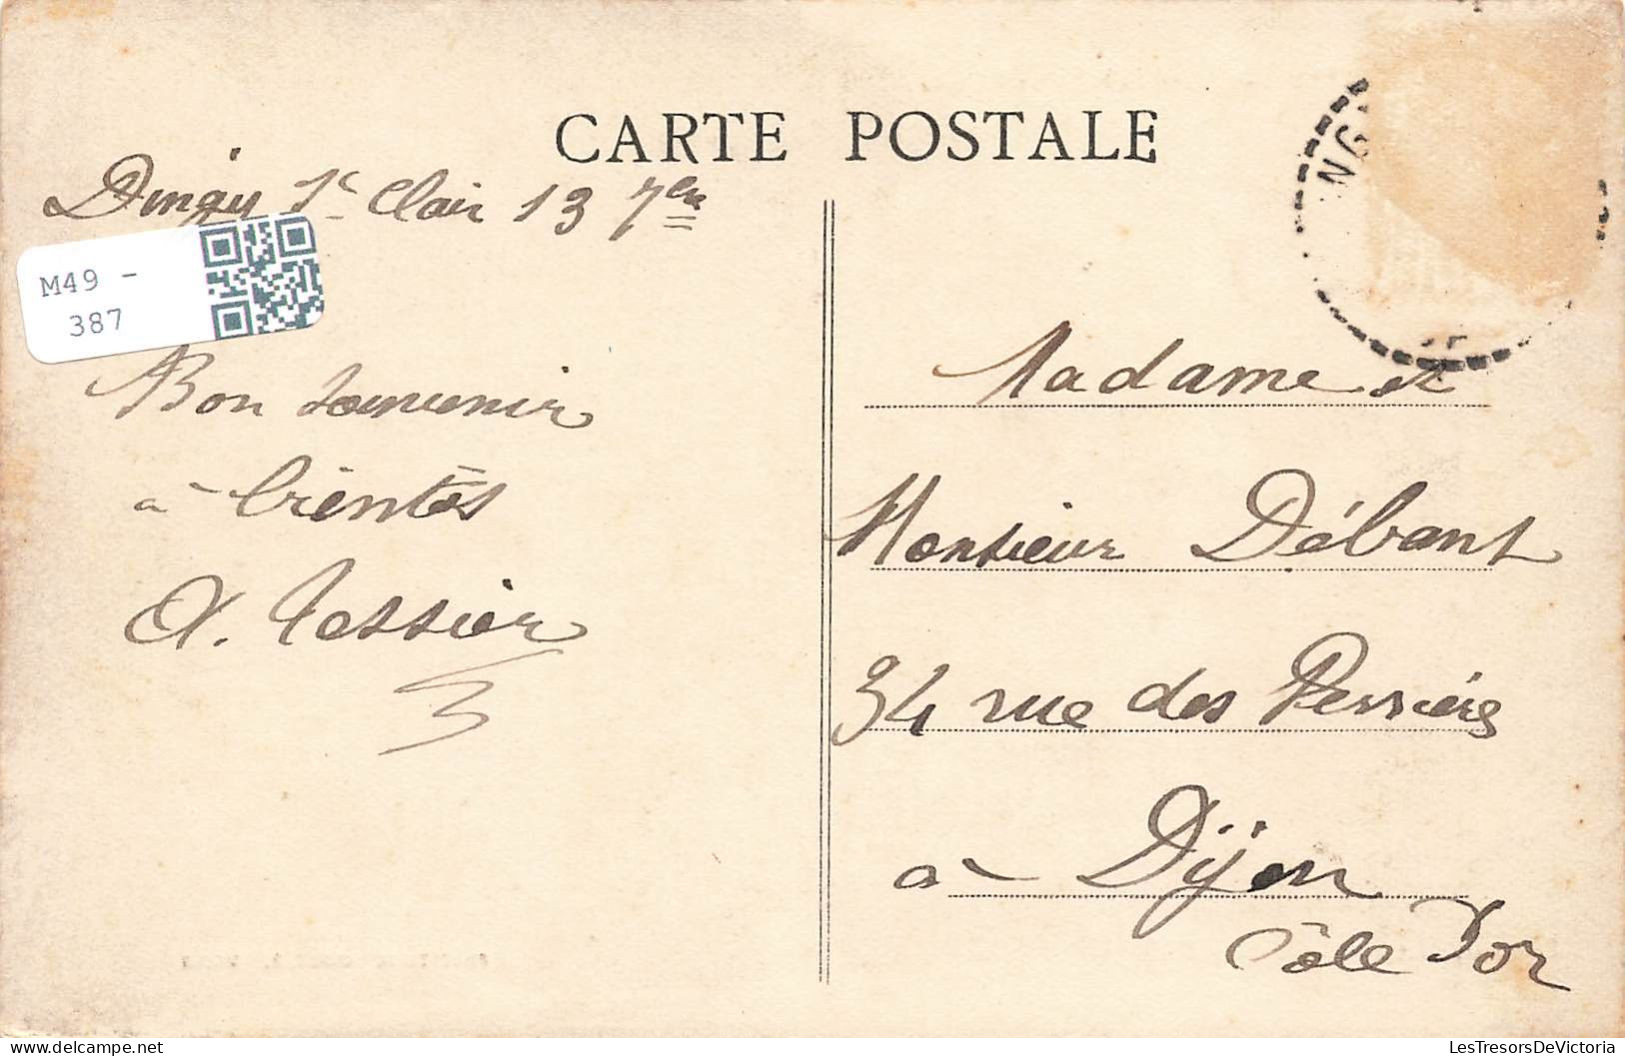 CARTE POSTALE
Dingy St Clair 13 7bre
M49 -
387
Bon souvenir
à bientôs
A. Tessier
NGY
Madame et
Monsieur Débant
34 rue des Perrières
à Dijon
Côte D'or
LesTresorsDeVictoria
delcampe.net
LesTresorsDeVictoria